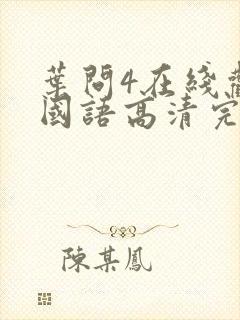 葉問4在綫
國語高清完
陳某鳳